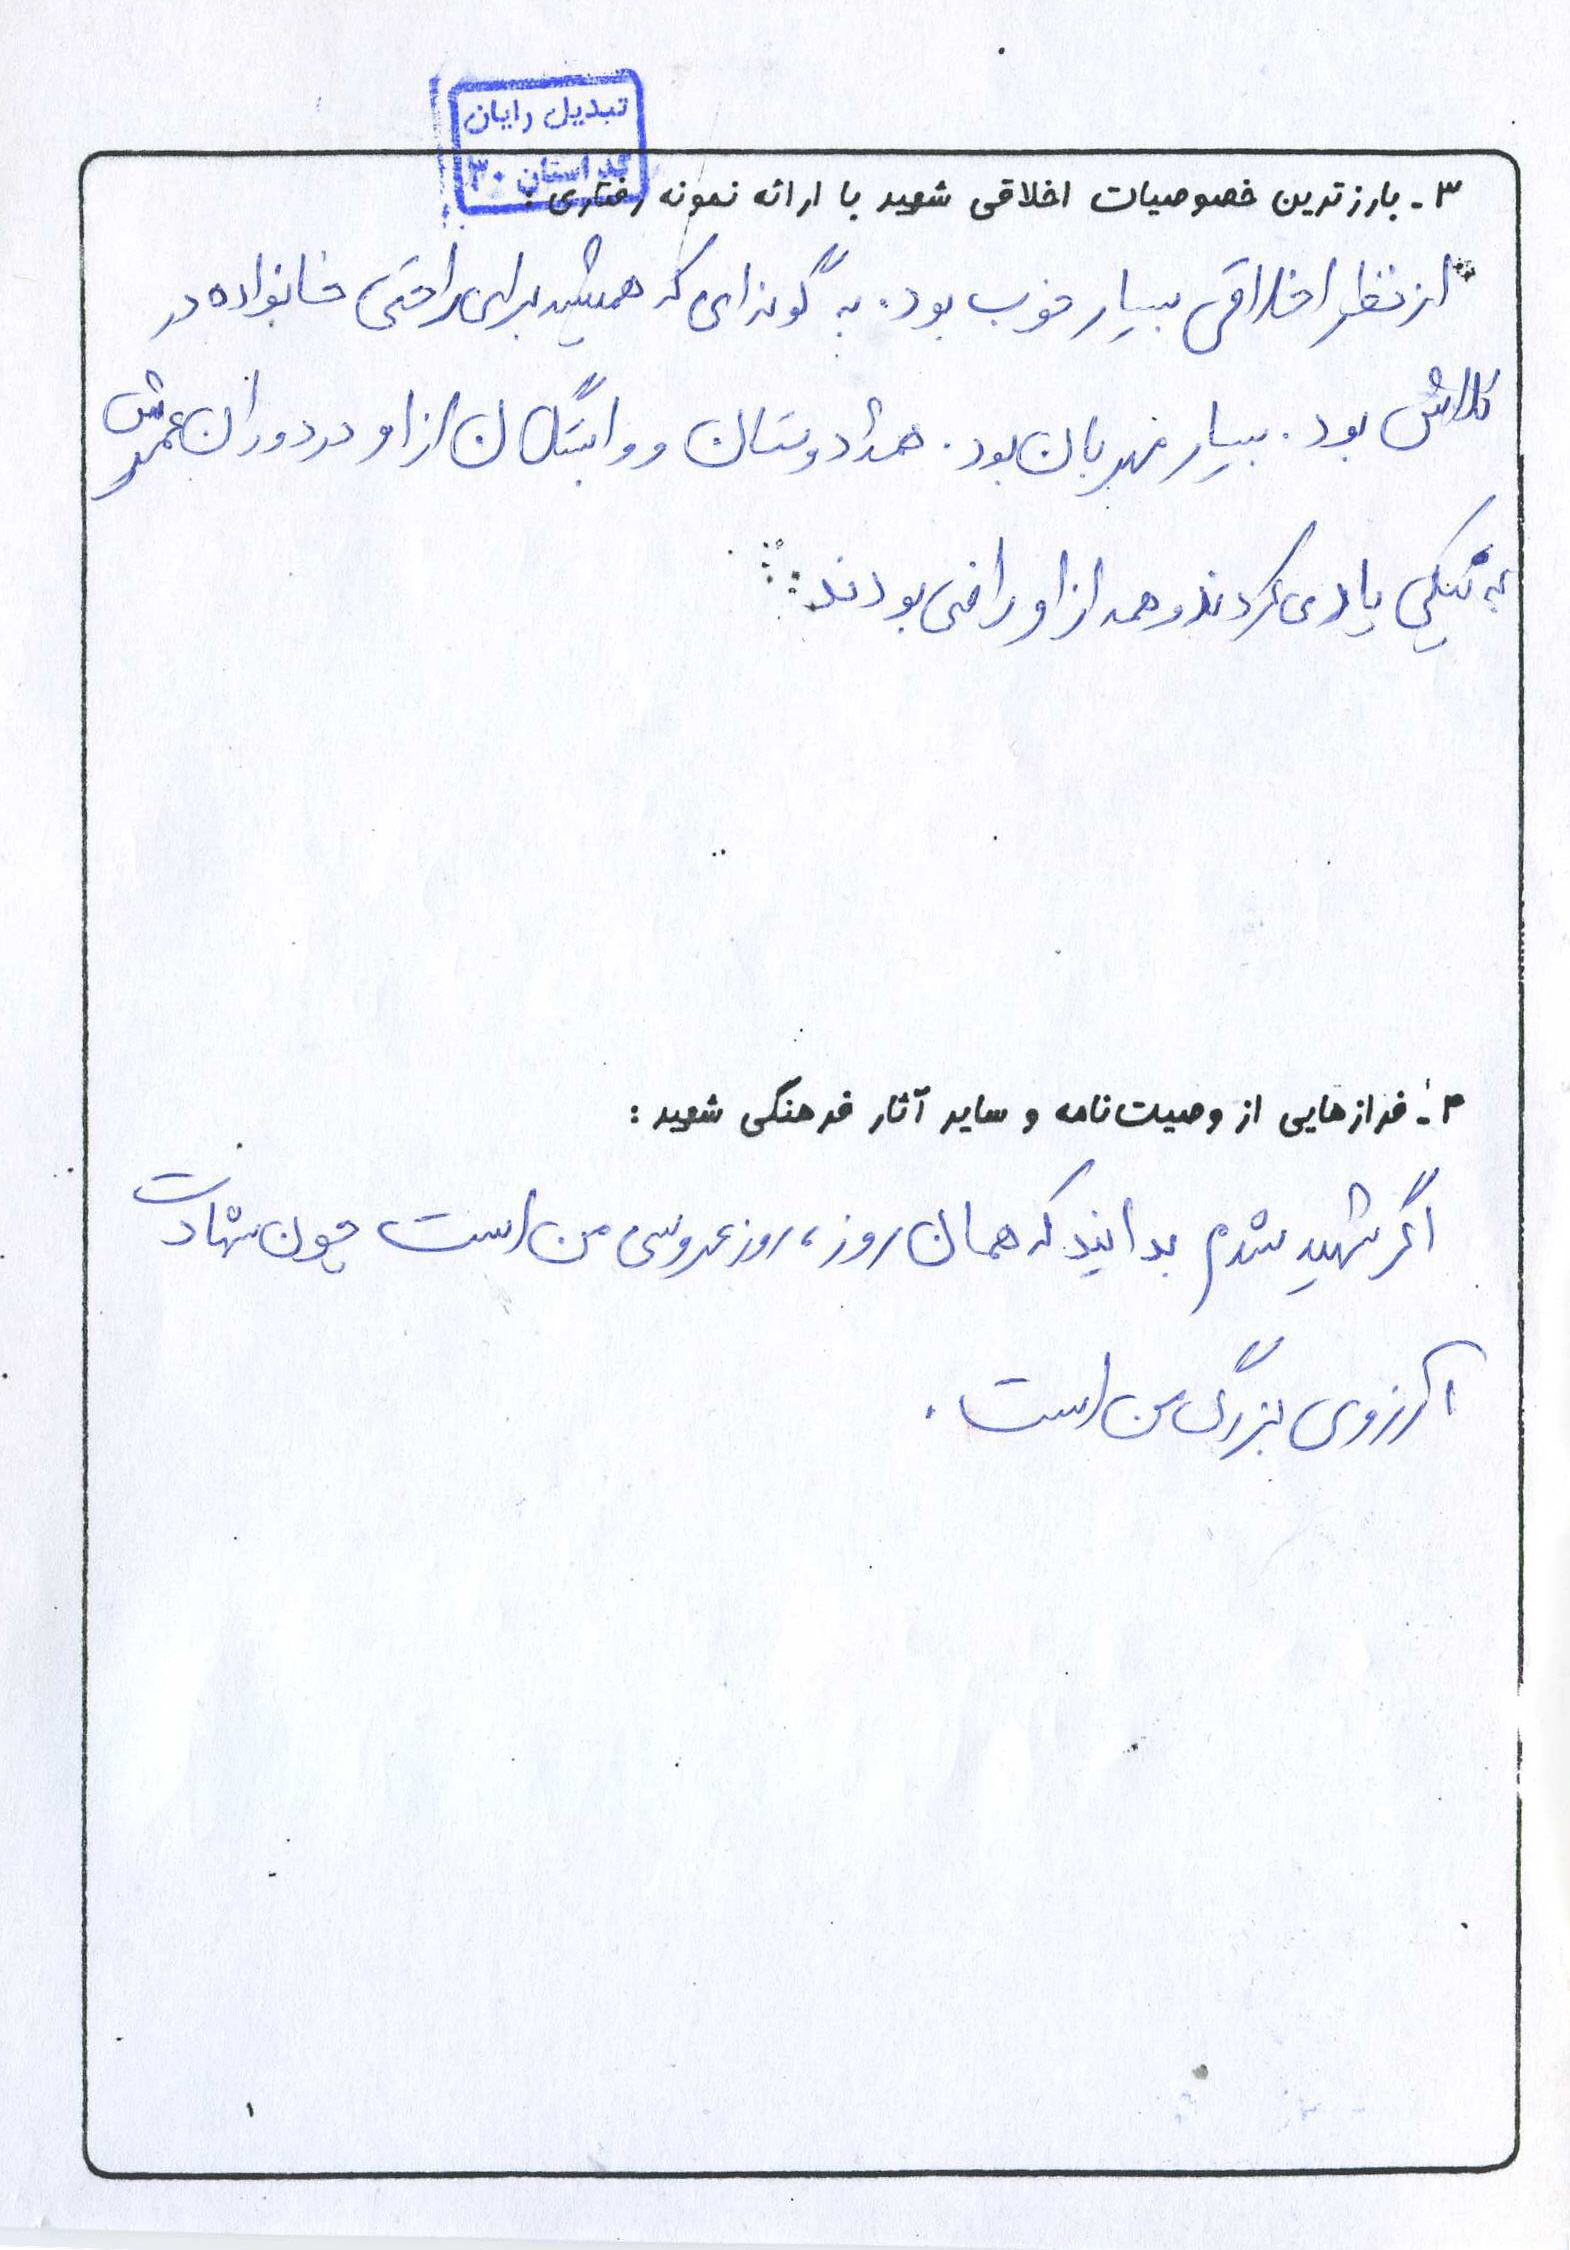 تبدیل رایان
کد استان ۳۰
۳- بارزترین خصوصیات اخلاقی شهید با ارائه نمونه رفتاری :
از نظر اخلاقی بسیار خوب بود. به گونه‌ای که همیشه برای راحتی خانواده در
تلاش بود. بسیار مهربان بود. همه دوستان و وابستگان از او در دوران عمرش
به نیکی یاد می‌کردند و همه از او راضی بودند.
۴- فرازهایی از وصیت‌نامه و سایر آثار فرهنگی شهید :
اگر شهید شدم بدانید که همان روز، روز عروسی من است چون شهادت
آرزوی بزرگ من است.